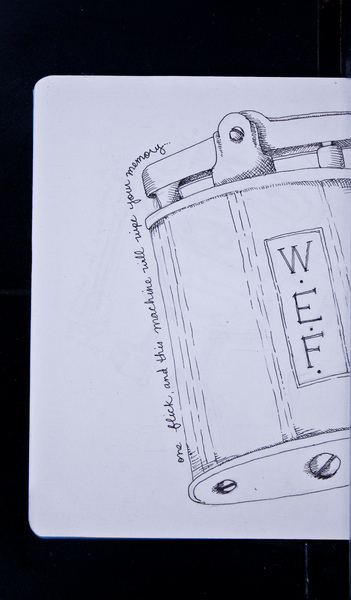 one flick, and this machine will wipe your memory...
W.E.F.